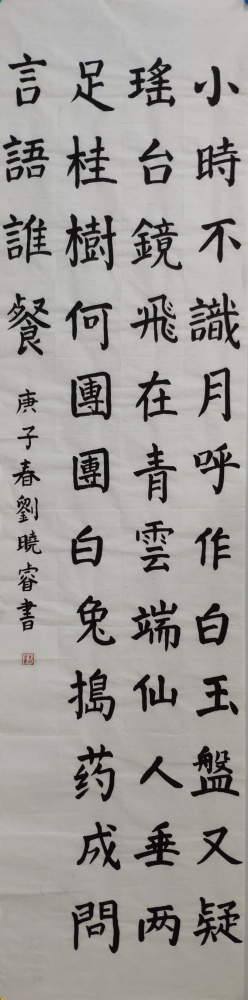 小時不識月呼作白玉盤又疑
瑤台鏡飛在青雲端仙人垂两
足桂樹何團團白兔搗药成問
言語誰餐
庚子春劉曉睿書